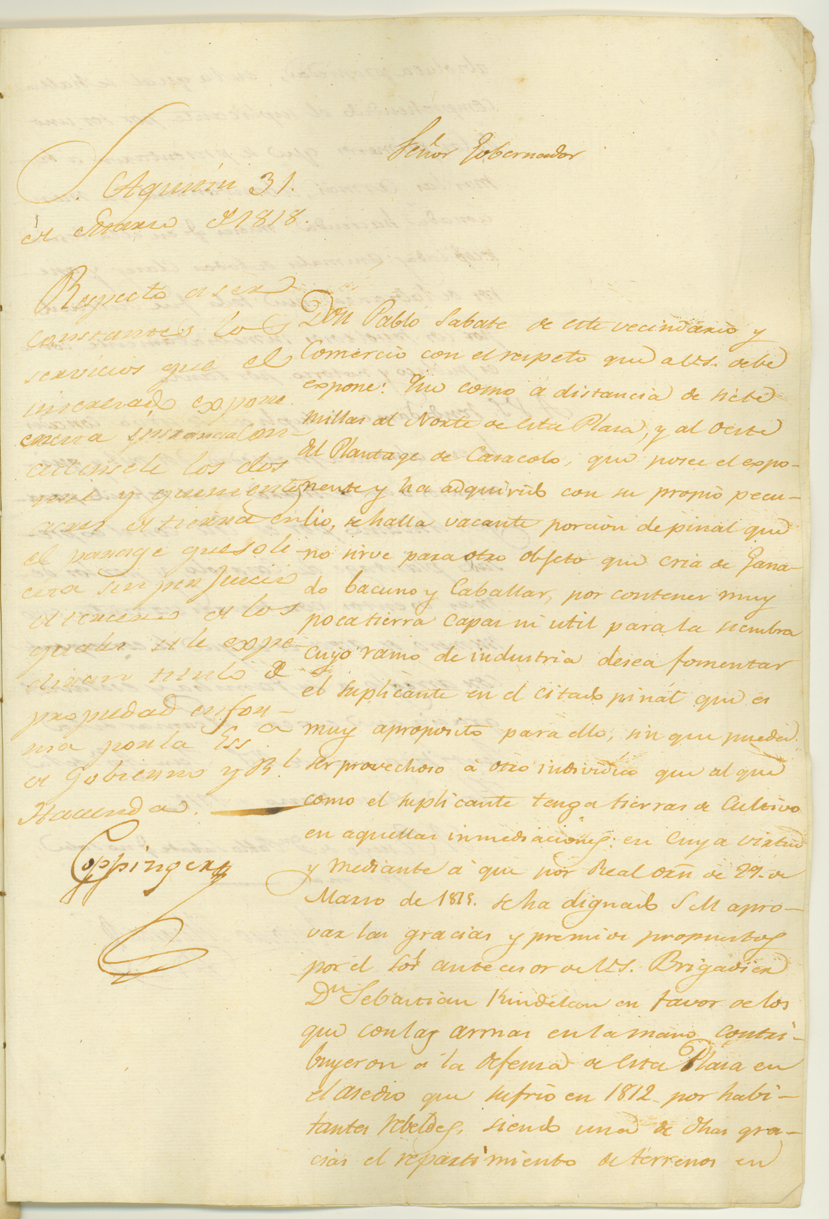 Señor Gobernador
S. Agustin 31.
de Enero de 1818.
Respecto a ser
constantes los
servicios que el
interesado expone
en esta instancia con-
cedensele los dos
mil y quinientos
acres de tierra en
el parage que sole-
cita sin perjuicio
de tercero de los
quales se le expe-
dirá titulo de
propiedad en for-
ma por la Ess.ª
de Gobierno y R.l
Hacienda.
Coppinger
Don Pablo Sabate de este vecindario y
Comercio con el respeto que a V.S. debe
expone: Que como á distancia de siete
millas al Norte de esta Plaza, y al Oeste
del Plantage de Casacola, que posee el expo-
nente y ha adquirido con su propio pecu-
lio, se halla vacante porcion de pinal que
no sirve para otro objeto que cria de Gana-
do bacuno y Caballar, por contener muy
poca tierra capas ni util para la siembra
cuyo ramo de industria desea fomentar
el suplicante en el citado pinal que es
muy aproposito para ello, sin que pueda
ser provechoso á otro individuo que al que
como el suplicante tenga tierras de Cultivo
en aquellas inmediaciones: en cuya virtud
y mediante á que por Real orñ de 29. de
Marzo de 1815. se ha dignado S M apro-
var las gracias y premios propuestos
por el Sor. antecesor de V.S. Brigadier
Dn. Sebastian Kindelan en favor de los
que con las armas en la mano contri-
buyeron á la defensa de esta Plaza en
el asedio que sufrió en 1812. por habi-
tantes rebeldes, siendo una de dhas gra-
cias el repartimiento de terrenos en